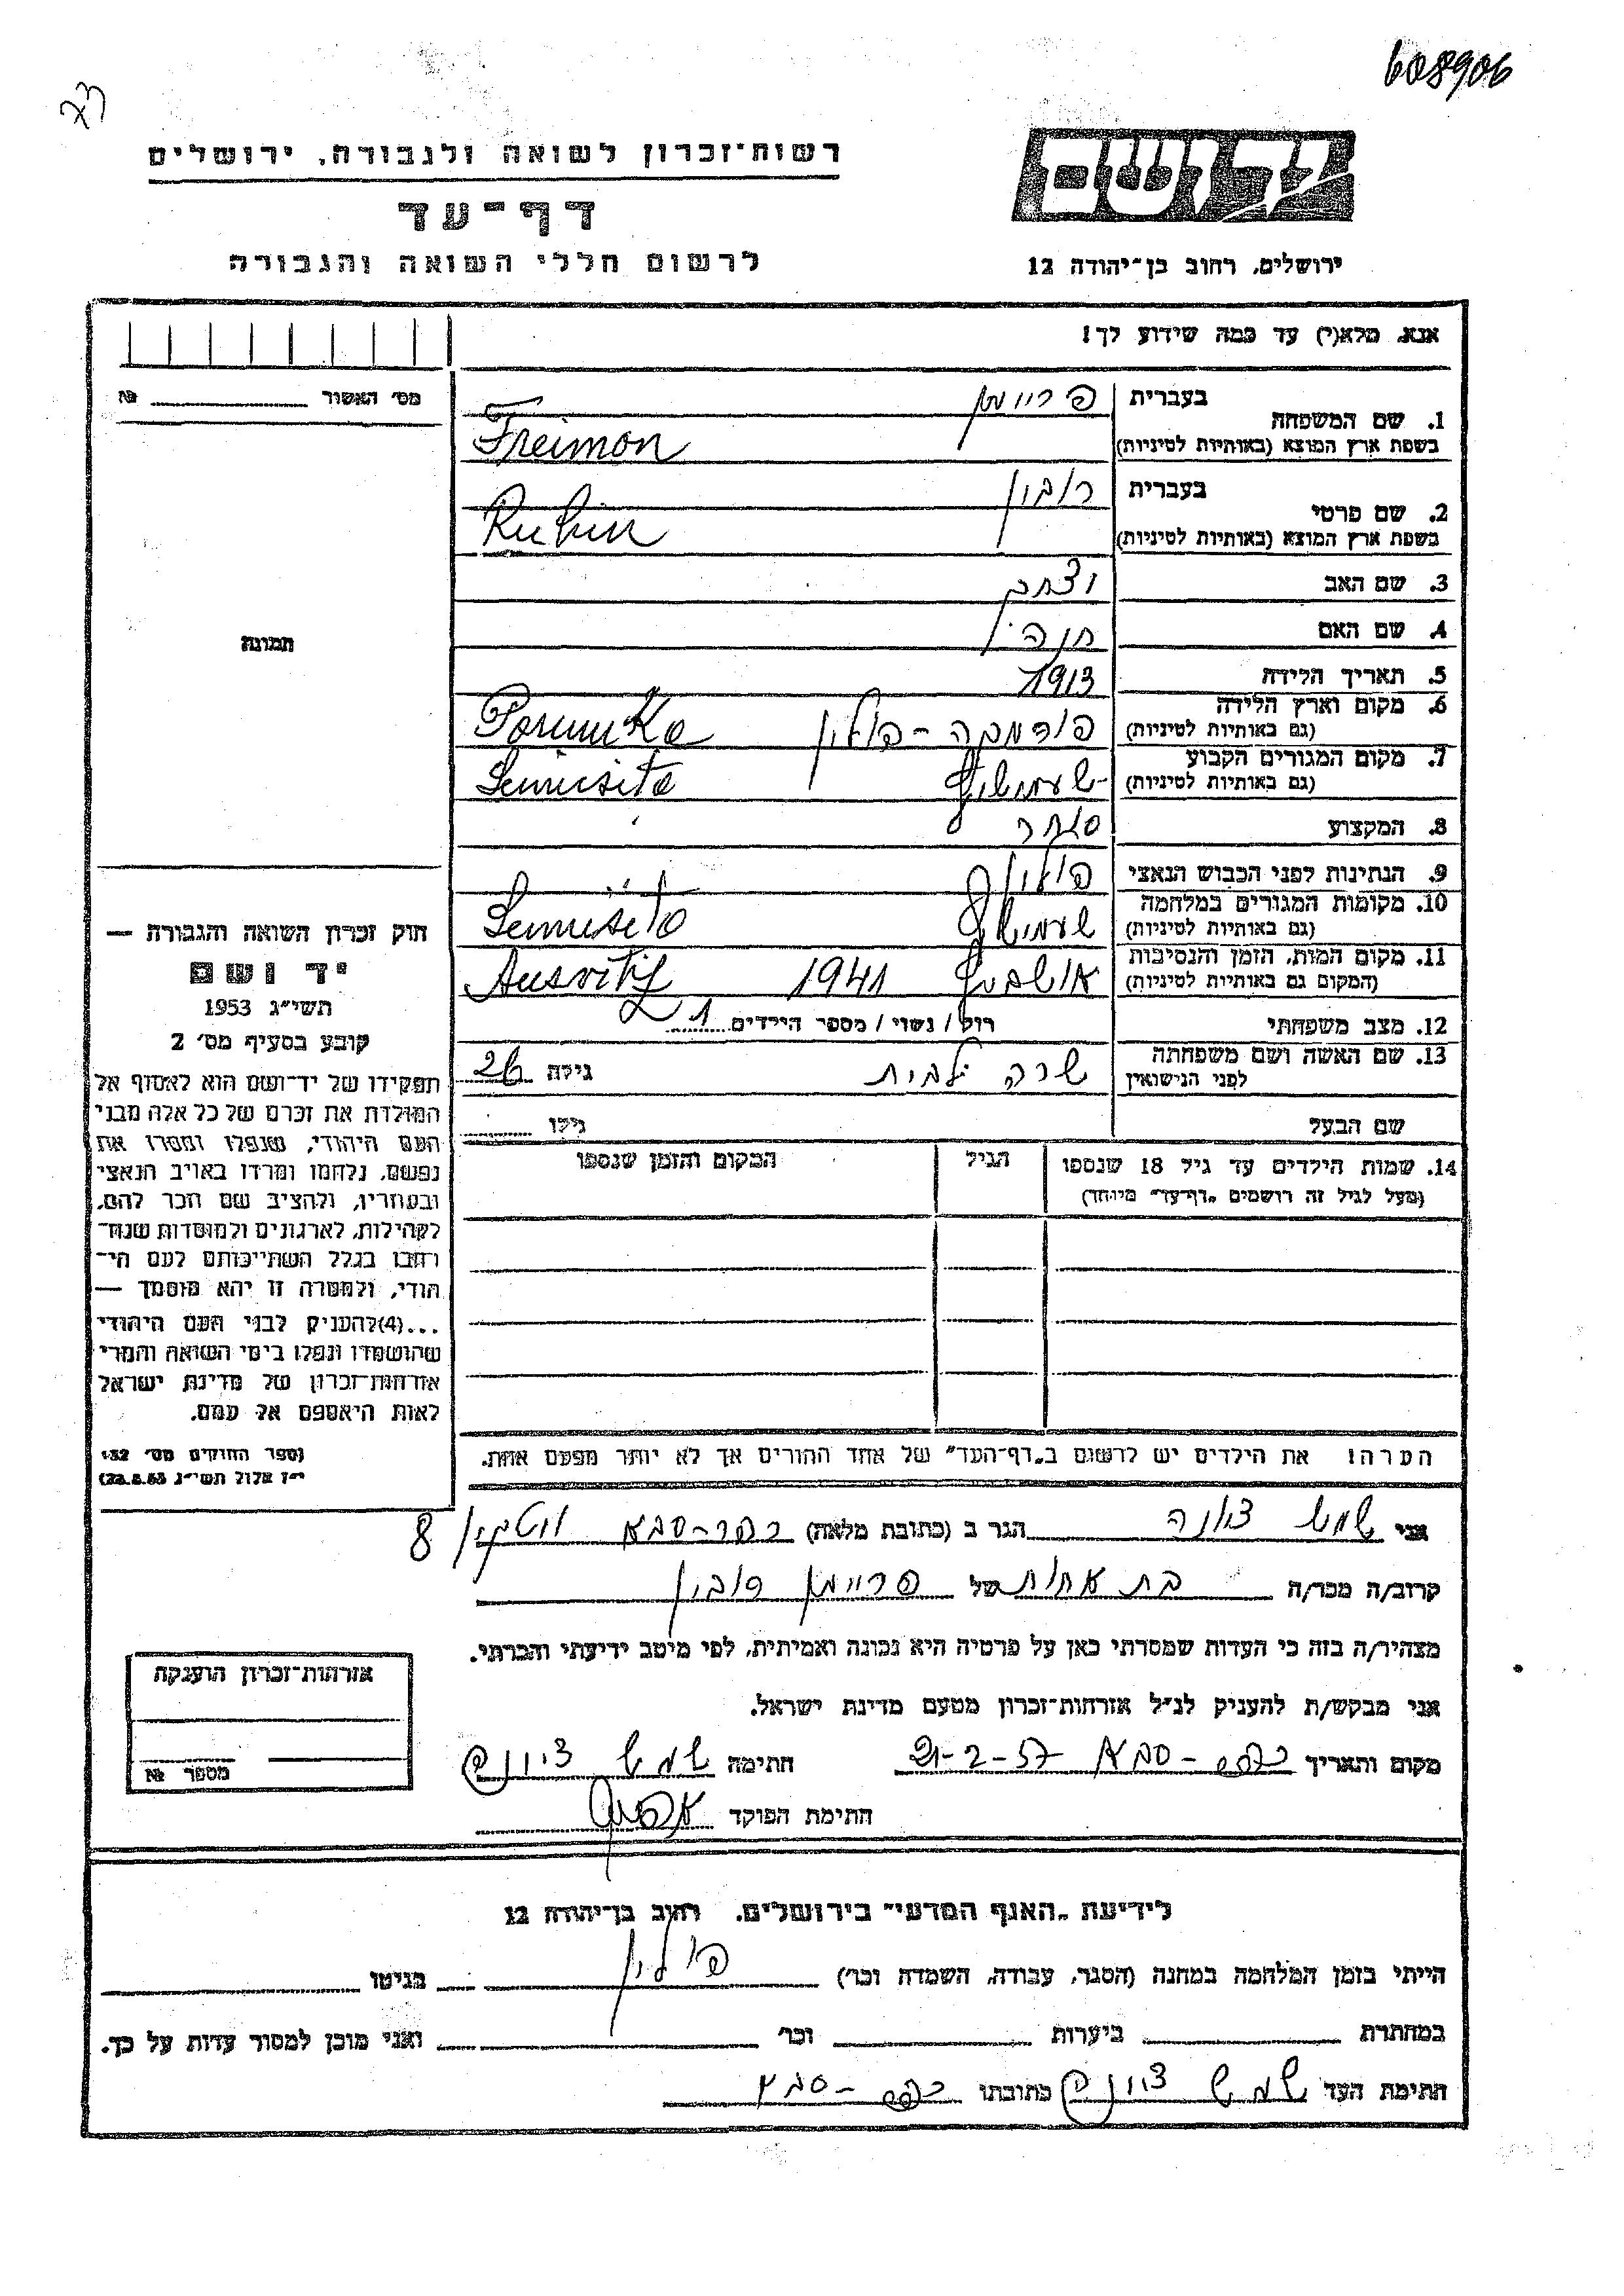 608906
רשות־זכרון לשואה ולגבורה, ירושלים
יד ושם
דף־עד
לרשום חללי השואה והגבורה
ירושלים, רחוב בן־יהודה 12
אנא, מלא(י) עד כמה שידוע לך!
מס׳ האשור № 
1. שם המשפחה בעברית פריימן
בשפת ארץ המוצא (באותיות לטיניות) Freimon
2. שם פרטי בעברית רובין
בשפת ארץ המוצא (באותיות לטיניות) Rubin
3. שם האב
4. שם האם חנה
5. תאריך הלידה 1913
6. מקום וארץ הלידה (גם באותיות לטיניות) פורמבקה - פולין
7. מקום המגורים הקבוע (גם באותיות לטיניות)
8. המקצוע סוחר
9. הנתינות לפני הכבוש הנאצי פולין
10. מקומות המגורים במלחמה (גם באותיות לטיניות)
11. מקום המות, הזמן והנסיבות (המקום גם באותיות לטיניות) 1941 Ausvitz
12. מצב משפחתי רוק / נשוי / מספר הילדים 1
13. שם האשה ושם משפחתה לפני הנישואין שרה גילה 26
שם הבעל גילו
14. שמות הילדים עד גיל 18 שנספו הגיל המקום והזמן שנספו
(מעל לגיל זה רושמים „דף־עד״ מיוחד)
הערה! את הילדים יש לרשום ב„דף־העד״ של אחד ההורים אך לא יותר מפעם אחת.
תמונה
חוק זכרון השואה והגבורה —
יד ושם
תשי״ג 1953
קובע בסעיף מס׳ 2
תפקידו של יד־ושם הוא לאסוף אל
המולדת את זכרם של כל אלה מבני
העם היהודי, שנפלו ומסרו את
נפשם, נלחמו ומרדו באויב הנאצי
ובעוזריו, ולהציב שם וזכר להם,
לקהילות, לארגונים ולמוסדות שנח־
רבו בגלל השתייכותם לעם הי־
הודי, ולמטרה זו יהא מוסמך —
...(4)להעניק לבני העם היהודי
שהושמדו ונפלו בימי השואה והמרי
אזרחות־זכרון של מדינת ישראל
לאות היאספם אל עמם.
(ספר החוקים מס׳ 132
י״ז אלול תשי״ג 28.8.53)
אני שמש ציונה הגר ב (כתובת מלאה) כפר-סבא 8
קרוב/ה מכר/ה בת אחות של פריימן רובין
מצהיר/ה בזה כי העדות שמסרתי כאן על פרטיה היא נכונה ואמיתית, לפי מיטב ידיעתי והכרתי.
אני מבקש/ת להעניק לנ״ל אזרחות־זכרון מטעם מדינת ישראל.
מקום ותאריך כפר-סבא 21-2-57 חתימה שמש ציונה
חתימת הפוקד
אזרחות־זכרון הוענקה
מספר №
לידיעת „האגף המדעי״ בירושלים, רחוב בן־יהודה 12
הייתי בזמן המלחמה במחנה (הסגר, עבודה, השמדה וכר׳) פולין בגיטו
במחתרת ביערות וכר׳ ואני מוכן למסור עדות על כך.
חתימת העד שמש ציונה כתובתו כפר-סבא